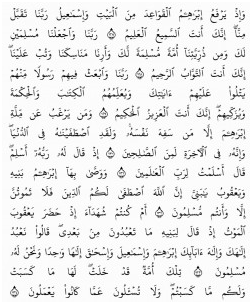 وَإِذْ يَرْفَعُ إِبْرَٰهِـۧمُ ٱلْقَوَاعِدَ مِنَ ٱلْبَيْتِ وَإِسْمَـٰعِيلُ رَبَّنَا تَقَبَّلْ
مِنَّآ إِنَّكَ أَنتَ ٱلسَّمِيعُ ٱلْعَلِيمُ ۝ رَبَّنَا وَٱجْعَلْنَا مُسْلِمَيْنِ
لَكَ وَمِن ذُرِّيَّتِنَآ أُمَّةً مُّسْلِمَةً لَّكَ وَأَرِنَا مَنَاسِكَنَا وَتُبْ عَلَيْنَآ
إِنَّكَ أَنتَ ٱلتَّوَّابُ ٱلرَّحِيمُ ۝ رَبَّنَا وَٱبْعَثْ فِيهِمْ رَسُولًا مِّنْهُمْ
يَتْلُوا۟ عَلَيْهِمْ ءَايَـٰتِكَ وَيُعَلِّمُهُمُ ٱلْكِتَـٰبَ وَٱلْحِكْمَةَ
وَيُزَكِّيهِمْ إِنَّكَ أَنتَ ٱلْعَزِيزُ ٱلْحَكِيمُ ۝ وَمَن يَرْغَبُ عَن مِّلَّةِ
إِبْرَٰهِـۧمَ إِلَّا مَن سَفِهَ نَفْسَهُۥ وَلَقَدِ ٱصْطَفَيْنَـٰهُ فِى ٱلدُّنْيَا
وَإِنَّهُۥ فِى ٱلْـَٔاخِرَةِ لَمِنَ ٱلصَّـٰلِحِينَ ۝ إِذْ قَالَ لَهُۥ رَبُّهُۥٓ أَسْلِمْ
قَالَ أَسْلَمْتُ لِرَبِّ ٱلْعَـٰلَمِينَ ۝ وَوَصَّىٰ بِهَآ إِبْرَٰهِـۧمُ بَنِيهِ
وَيَعْقُوبُ يَـٰبَنِىَّ إِنَّ ٱللَّهَ ٱصْطَفَىٰ لَكُمُ ٱلدِّينَ فَلَا تَمُوتُنَّ
إِلَّا وَأَنتُم مُّسْلِمُونَ ۝ أَمْ كُنتُمْ شُهَدَآءَ إِذْ حَضَرَ يَعْقُوبَ
ٱلْمَوْتُ إِذْ قَالَ لِبَنِيهِ مَا تَعْبُدُونَ مِنۢ بَعْدِى قَالُوا۟ نَعْبُدُ
إِلَـٰهَكَ وَإِلَـٰهَ ءَابَآئِكَ إِبْرَٰهِـۧمَ وَإِسْمَـٰعِيلَ وَإِسْحَـٰقَ إِلَـٰهًا وَٰحِدًا وَنَحْنُ لَهُۥ
مُسْلِمُونَ ۝ تِلْكَ أُمَّةٌ قَدْ خَلَتْ لَهَا مَا كَسَبَتْ
وَلَكُم مَّا كَسَبْتُمْ وَلَا تُسْـَٔلُونَ عَمَّا كَانُوا۟ يَعْمَلُونَ ۝